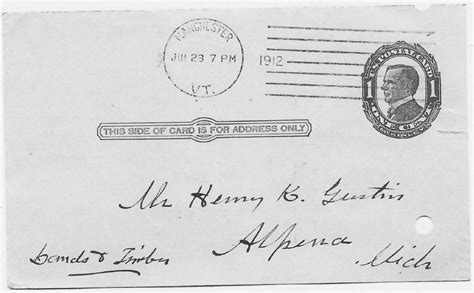 MANCHESTER
JUL 23 7 PM
1912
VT.
U.S. POSTAL CARD
1 1
THIS SIDE OF CARD IS FOR ADDRESS ONLY
Mr Henry K. Gustin
Alpena
Lands & Timber
Mich